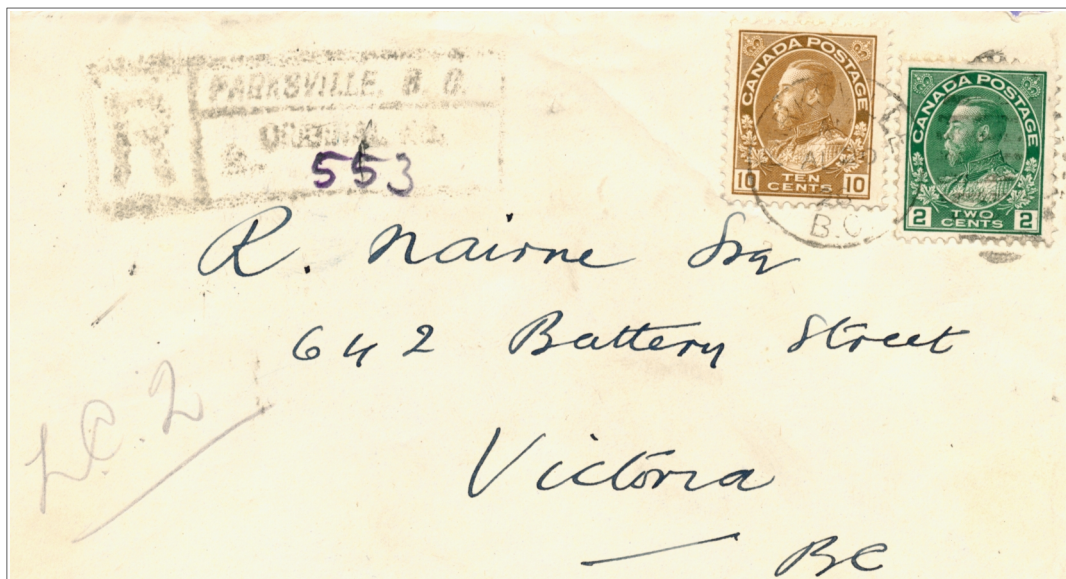 R
PARKSVILLE, B. C.
ORIGINAL No.
553
CANADA POSTAGE
10 TEN CENTS 10
CANADA POSTAGE
2 TWO CENTS 2
B.C.
R. Nairne Esq
642 Battery Street
Victoria
BC
L.C. 2